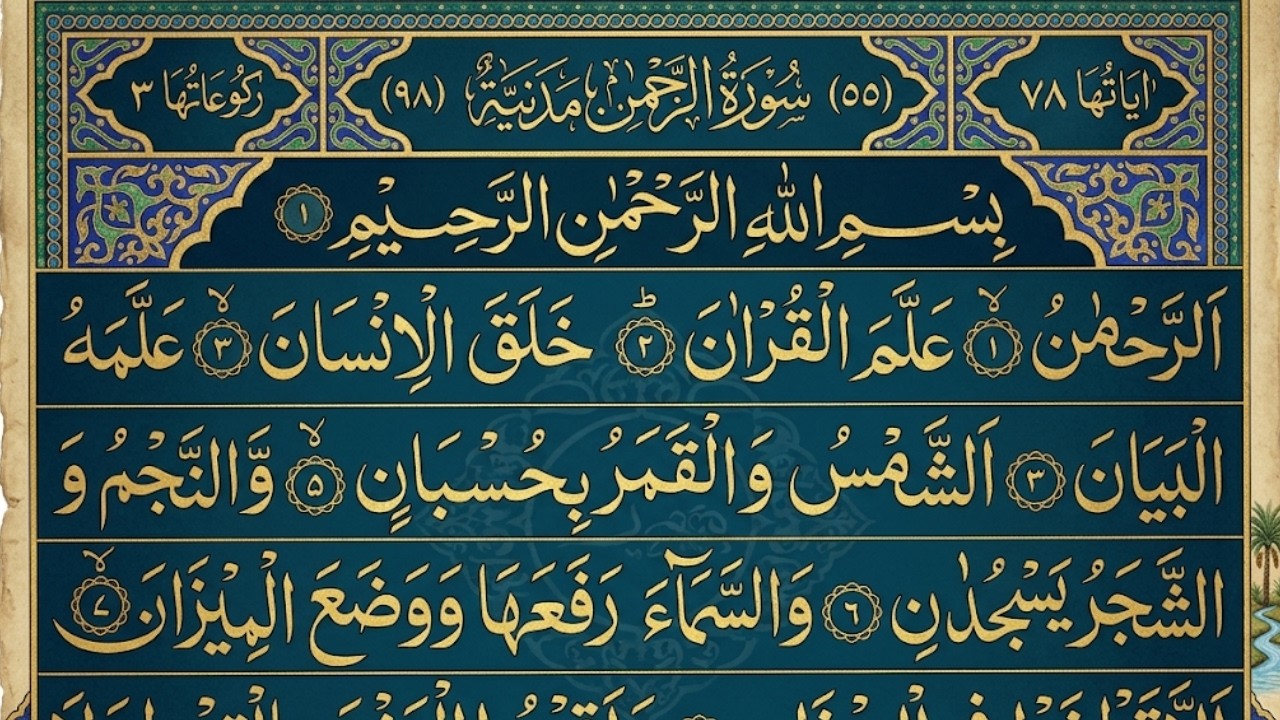 اٰيَاتُهَا ٧٨
(٥٥) سُوْرَةُ الرَّحْمٰنِ مَدَنِيَّةٌ (٩٨)
رَكُوْعَاتُهَا ٣
بِسْمِ اللهِ الرَّحْمٰنِ الرَّحِيْمِ ١
اَلرَّحْمٰنُ ١ۙ عَلَّمَ الْقُرْاٰنَ ٢ؕ خَلَقَ الْاِنْسَانَ ٣ۙ عَلَّمَهُ
الْبَيَانَ ٣ اَلشَّمْسُ وَالْقَمَرُ بِحُسْبَانٍ ٥ۙ وَّالنَّجْمُ وَ
الشَّجَرُ يَسْجُدٰنِ ٦ وَالسَّمَآءَ رَفَعَهَا وَوَضَعَ الْمِيْزَانَ ٧ۙ